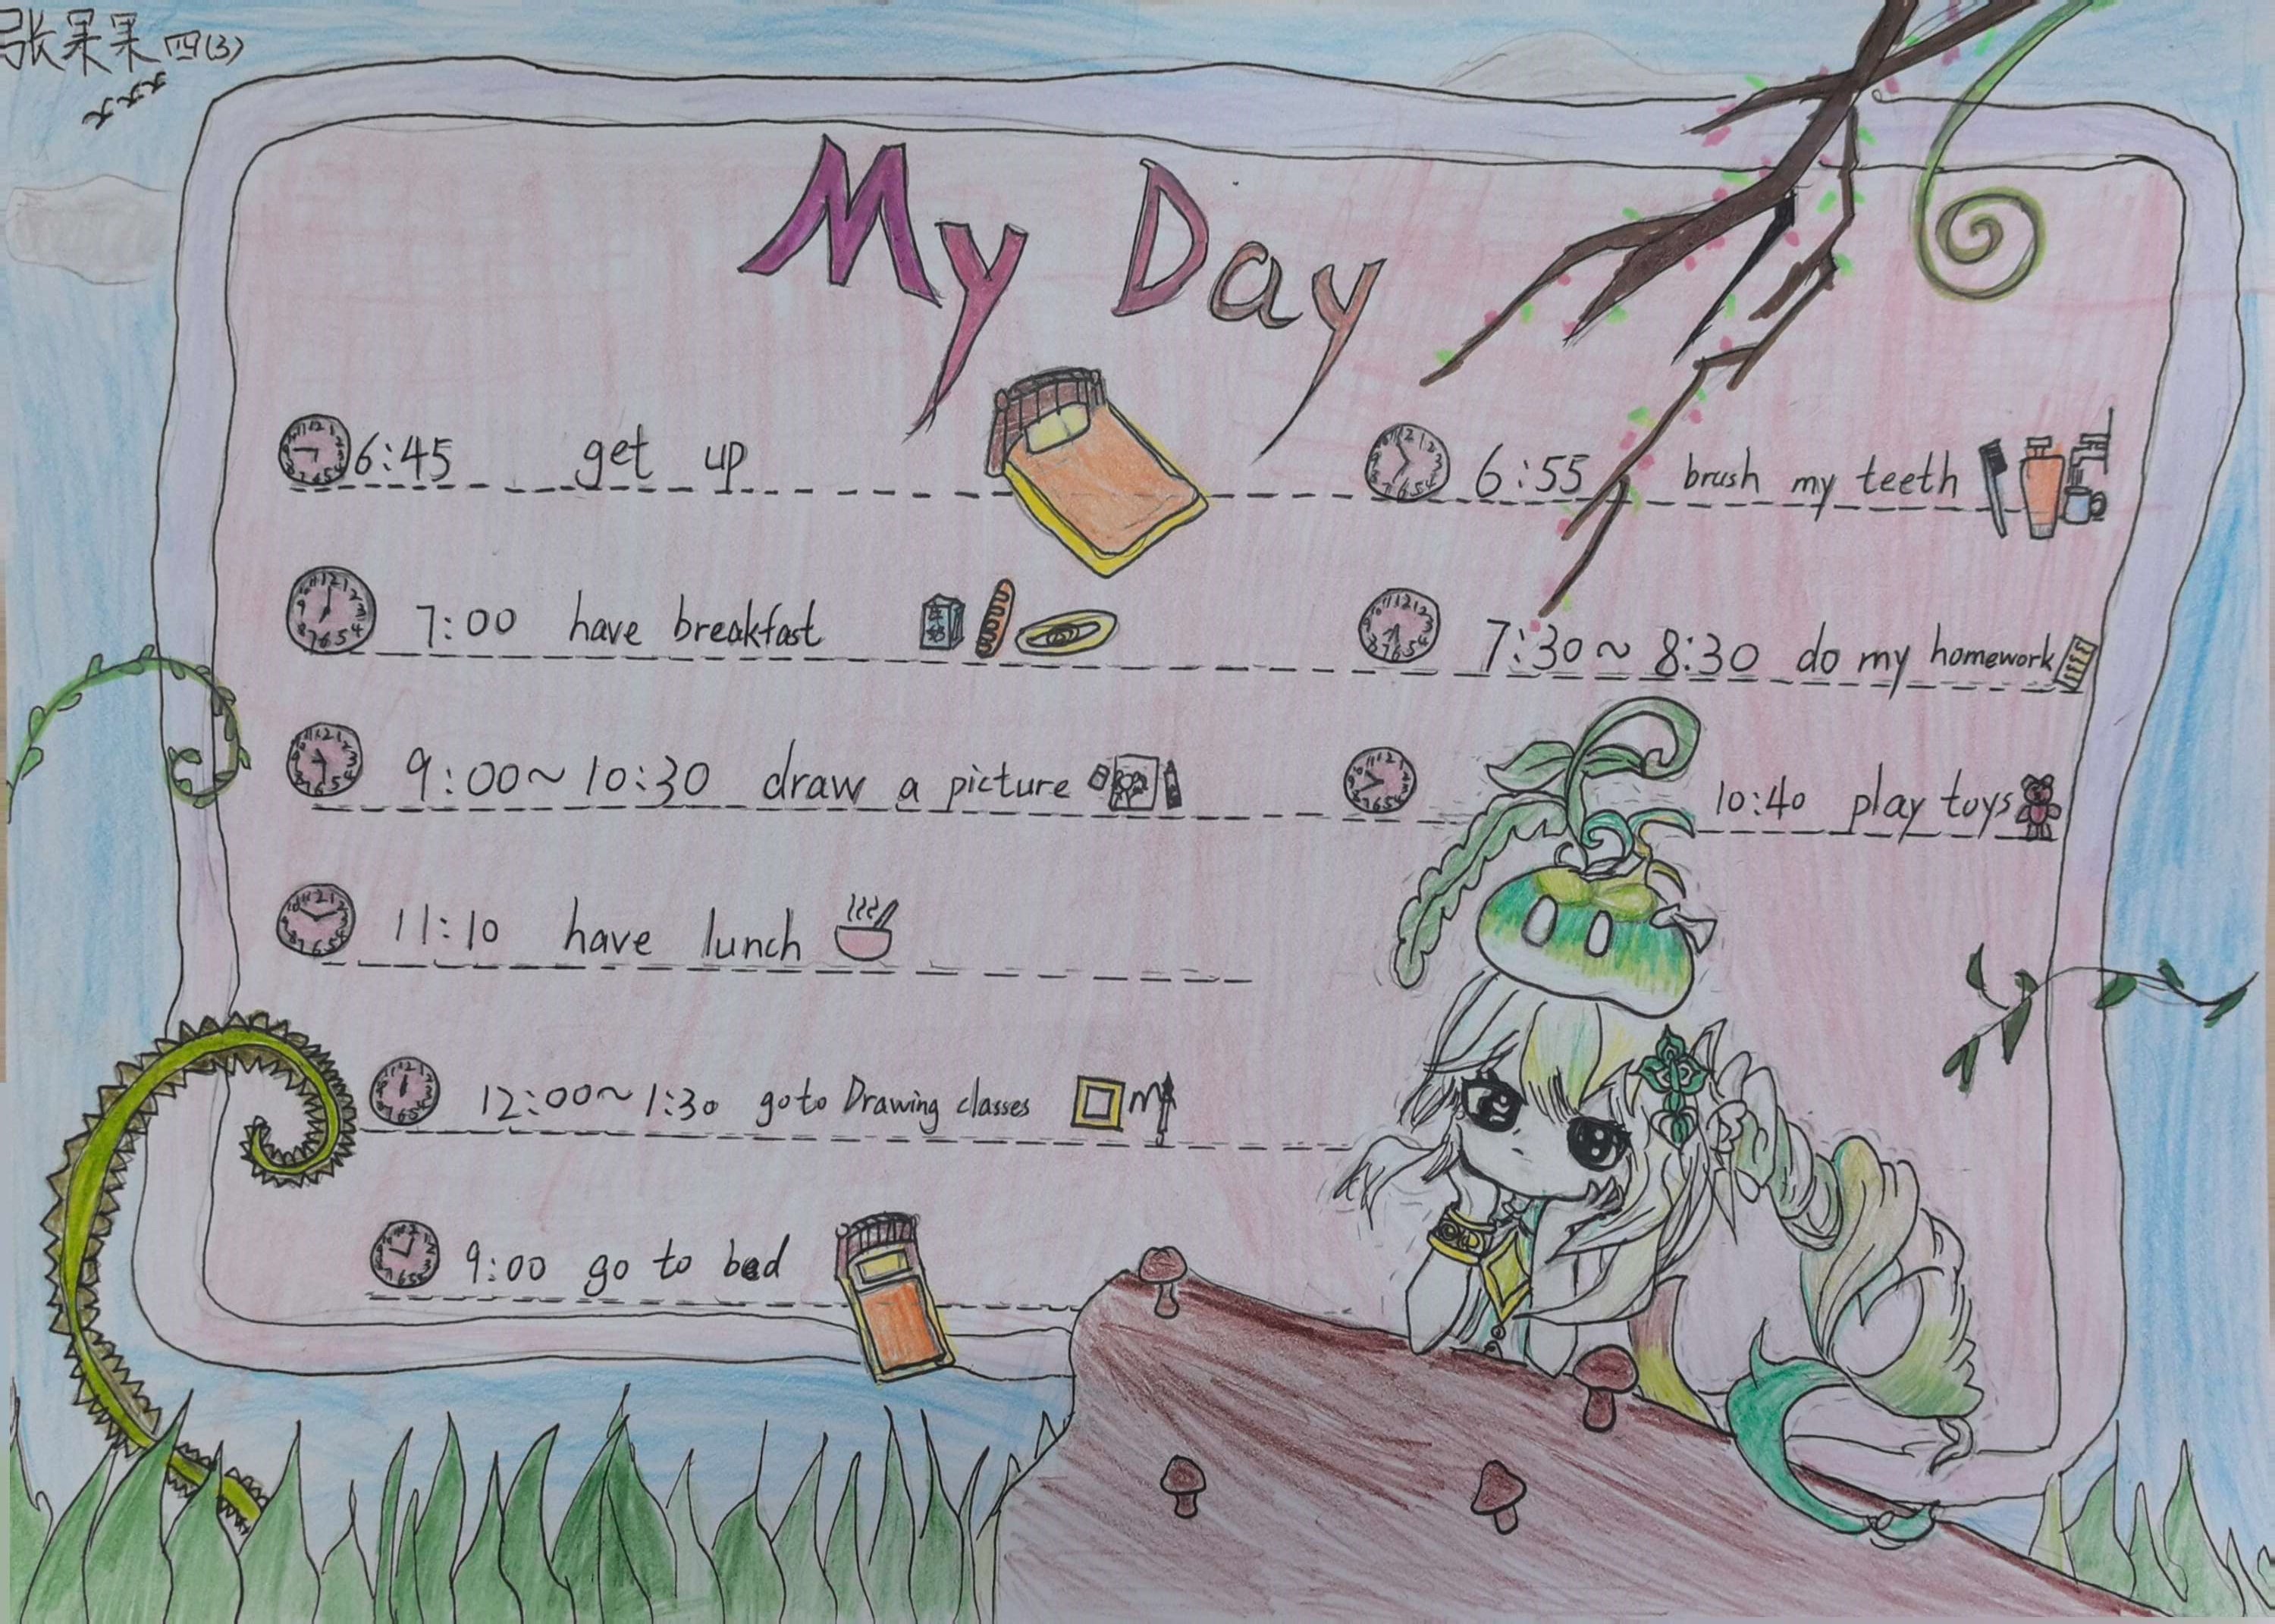 张果果 四(3)
My Day
6:45 get up
6:55 brush my teeth
7:00 have breakfast
7:30~8:30 do my homework
9:00~10:30 draw a picture
10:40 play toys
11:10 have lunch
12:00~1:30 go to Drawing classes
9:00 go to bed